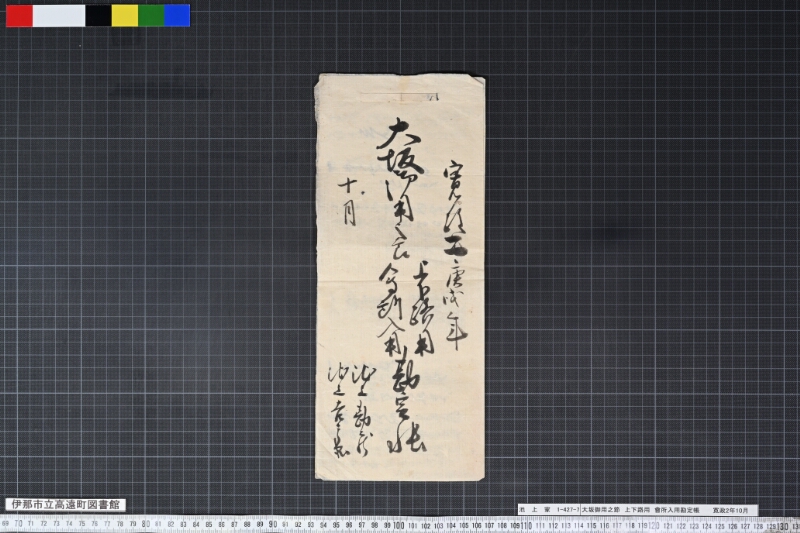 寛政二庚戌年
大坂御用之節
上下路用
会所入用
勘定帳
十月
池上勘蔵
池上
伊那市立高遠町図書館
池上家 1-427-7 大坂御用之節 上下路用 會所入用勘定帳 寛政2年10月